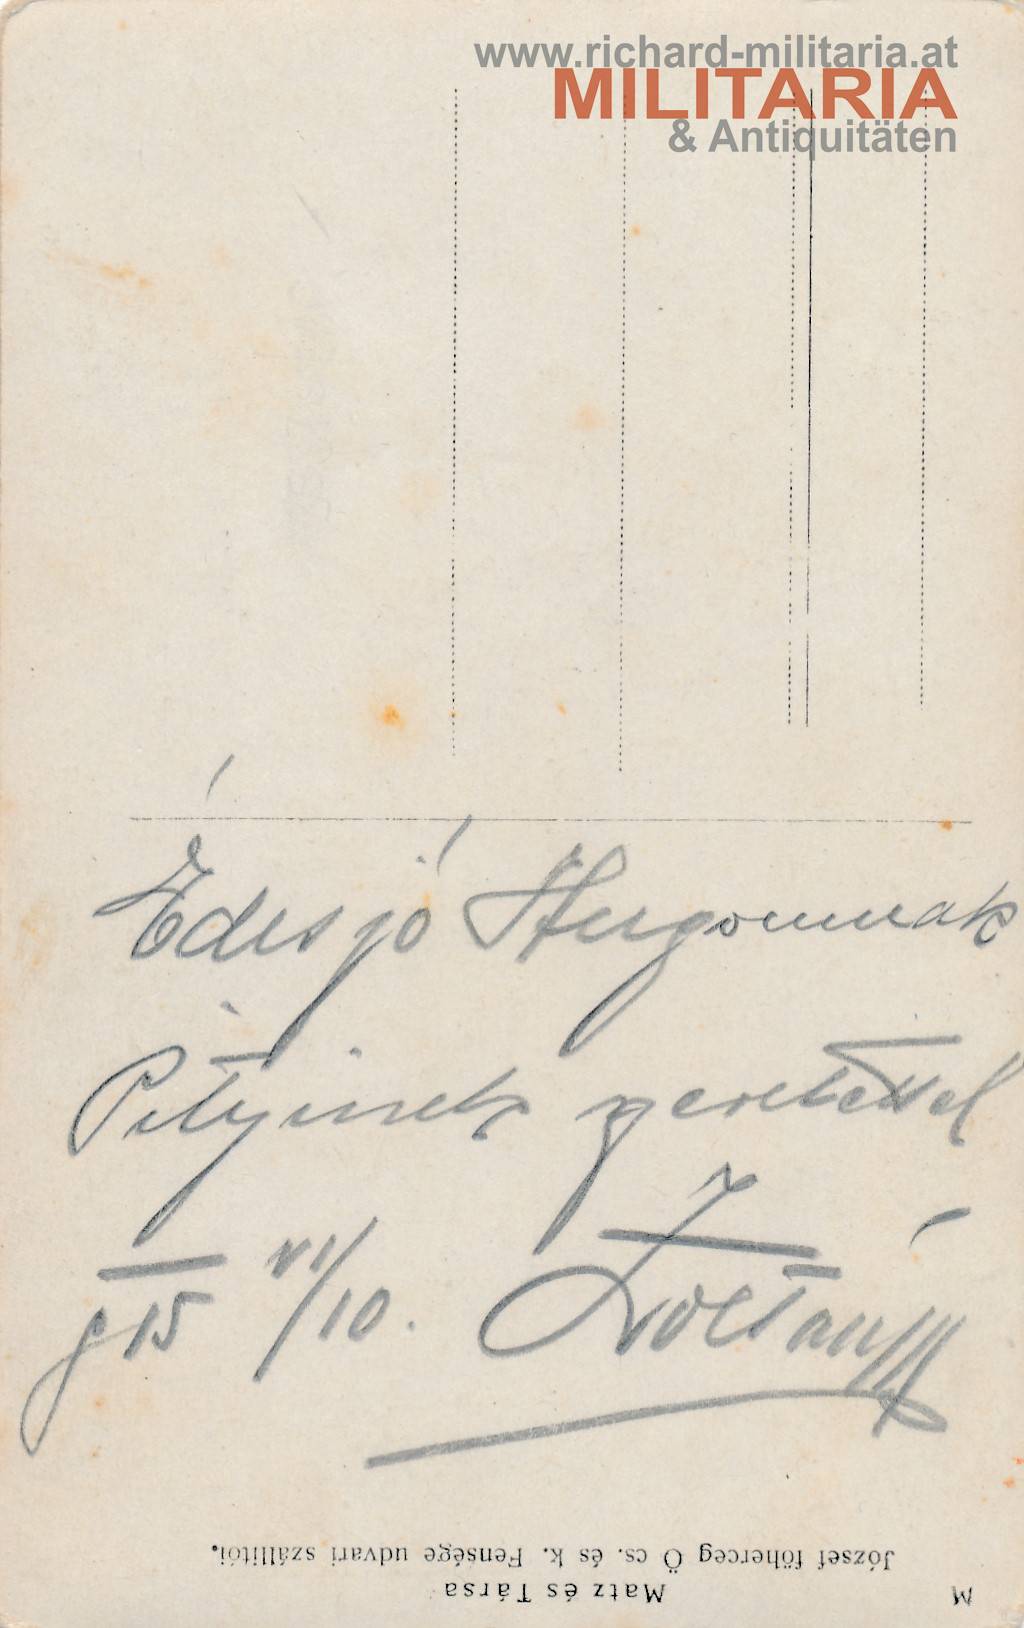 www.richard-militaria.at
MILITARIA
& Antiquitäten
Édes jó Hugomnak
Pityinek szeretettel
915 VI/10. Zoltán
József főherceg Ő cs. és k. Fensége udvari szállítói.
Matz és Társa
M